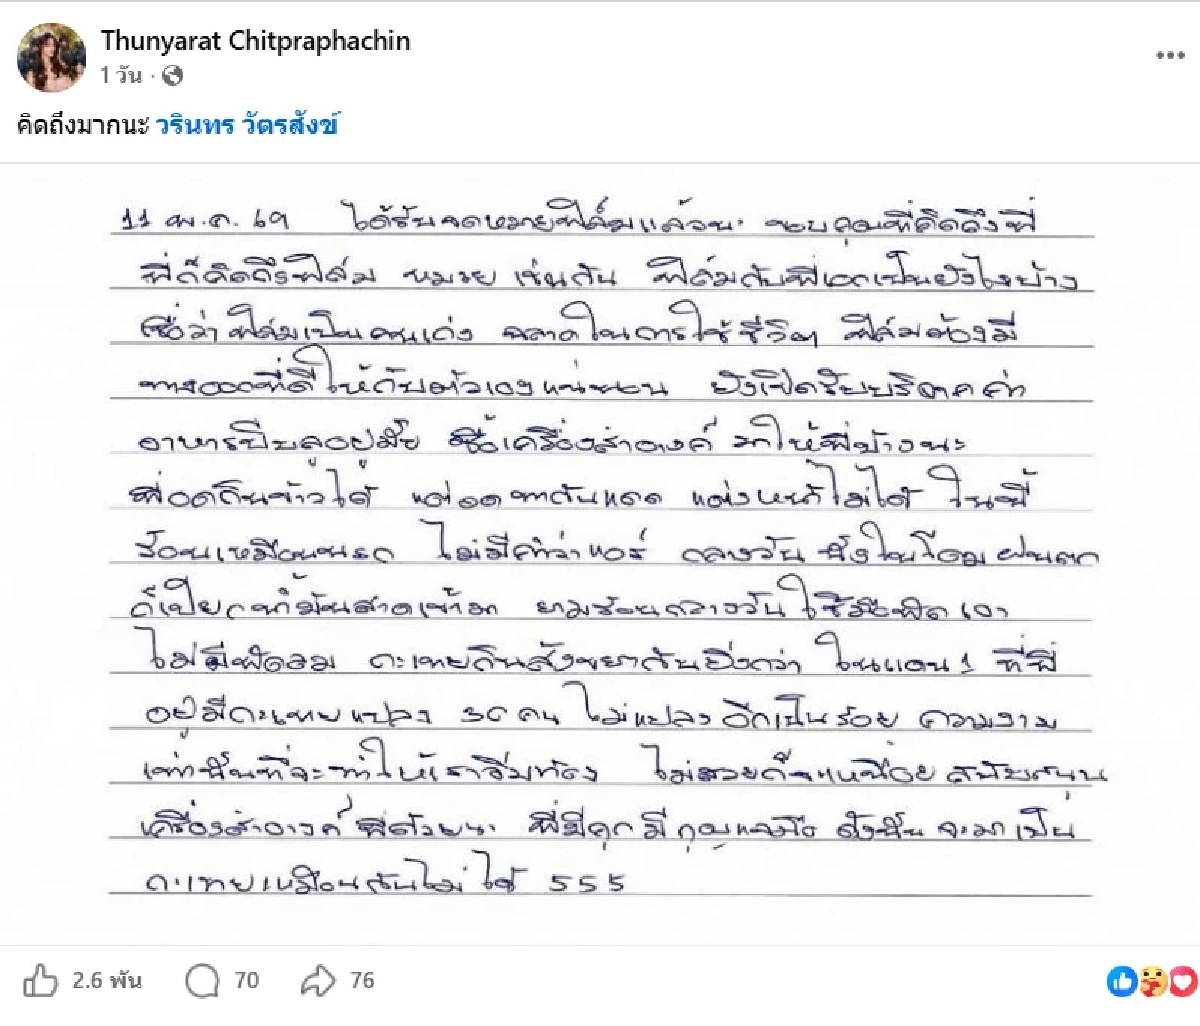 Thunyarat Chitpraphachin
1 วัน ·
คิดถึงมากนะ วรินทร วัตรสังข์
11 พ.ค. 69 ได้รับจดหมายฟิล์มแล้วนะ ขอบคุณที่คิดถึงพี่
พี่ก็คิดถึงฟิล์ม หมวย เช่นกัน ฟิล์มกับพี่เอกเป็นยังไงบ้าง
เชื่อว่าฟิล์มเป็นคนเก่ง ฉลาดในการใช้ชีวิต ฟิล์มต้องมี
ทางออกที่ดีให้กับตัวเองแน่นอน ยังเปิดรับบริจาคค่า
อาหารปีบลูอยู่มั้ย ซื้อเครื่องสำอางค์ มาให้พี่บ้างนะ
พี่อดกินข้าวได้ แต่อดทากันแดด แต่งหน้าไม่ได้ ในนี้
ร้อนเหมือนนรก ไม่มีคำว่าแอร์ กลางวัน นั่งในโดม ฝนตก
ก็เปียกน้ำมันสาดเข้ามา ยามร้อนกลางวัน ใช้มือพัดเอา
ไม่มีพัดลม กะเทยกินสังขยากันยิ่งกว่า ในแดน 1 ที่พี่
อยู่มีกะเทยแปลง 36 คน ไม่แปลง อีกเป็นร้อย ความงาม
เท่านั้นที่จะทำให้เราอิ่มท้อง ไม่สวยก็จะเหนื่อย สนับสนุน
เครื่องสำอางค์ พี่ด้วยนะ พี่มีคุก มี กุญแจมือ ดังนั้น จะมาเป็น
กะเทยเหมือนกันไม่ได้ 555
2.6 พัน 70 76